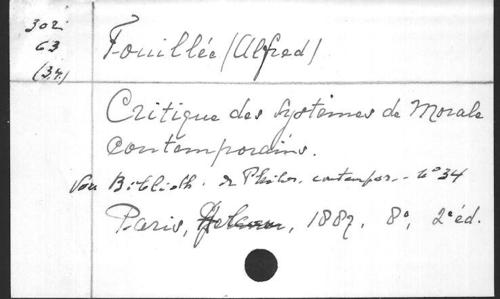 302
63
(34)
Fouillée (Alfred)
Critique des Systèmes de Morale
Contemporains.
Voir Biblioth. de Philos. contempor. - N° 34
Paris, , 1887. 8°, 2e éd.